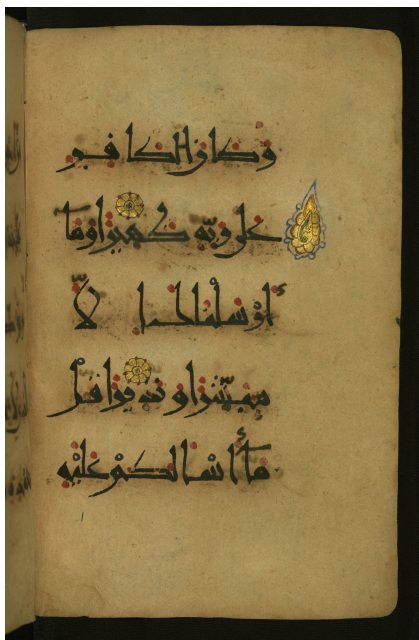 وَكَانَ الْكَافِرُ
عَلَىٰ رَبِّهِ ظَهِيرًا وَمَا
أَرْسَلْنَاكَ إِلَّا
مُبَشِّرًا وَنَذِيرًا قُلْ
مَا أَسْأَلُكُمْ عَلَيْهِ